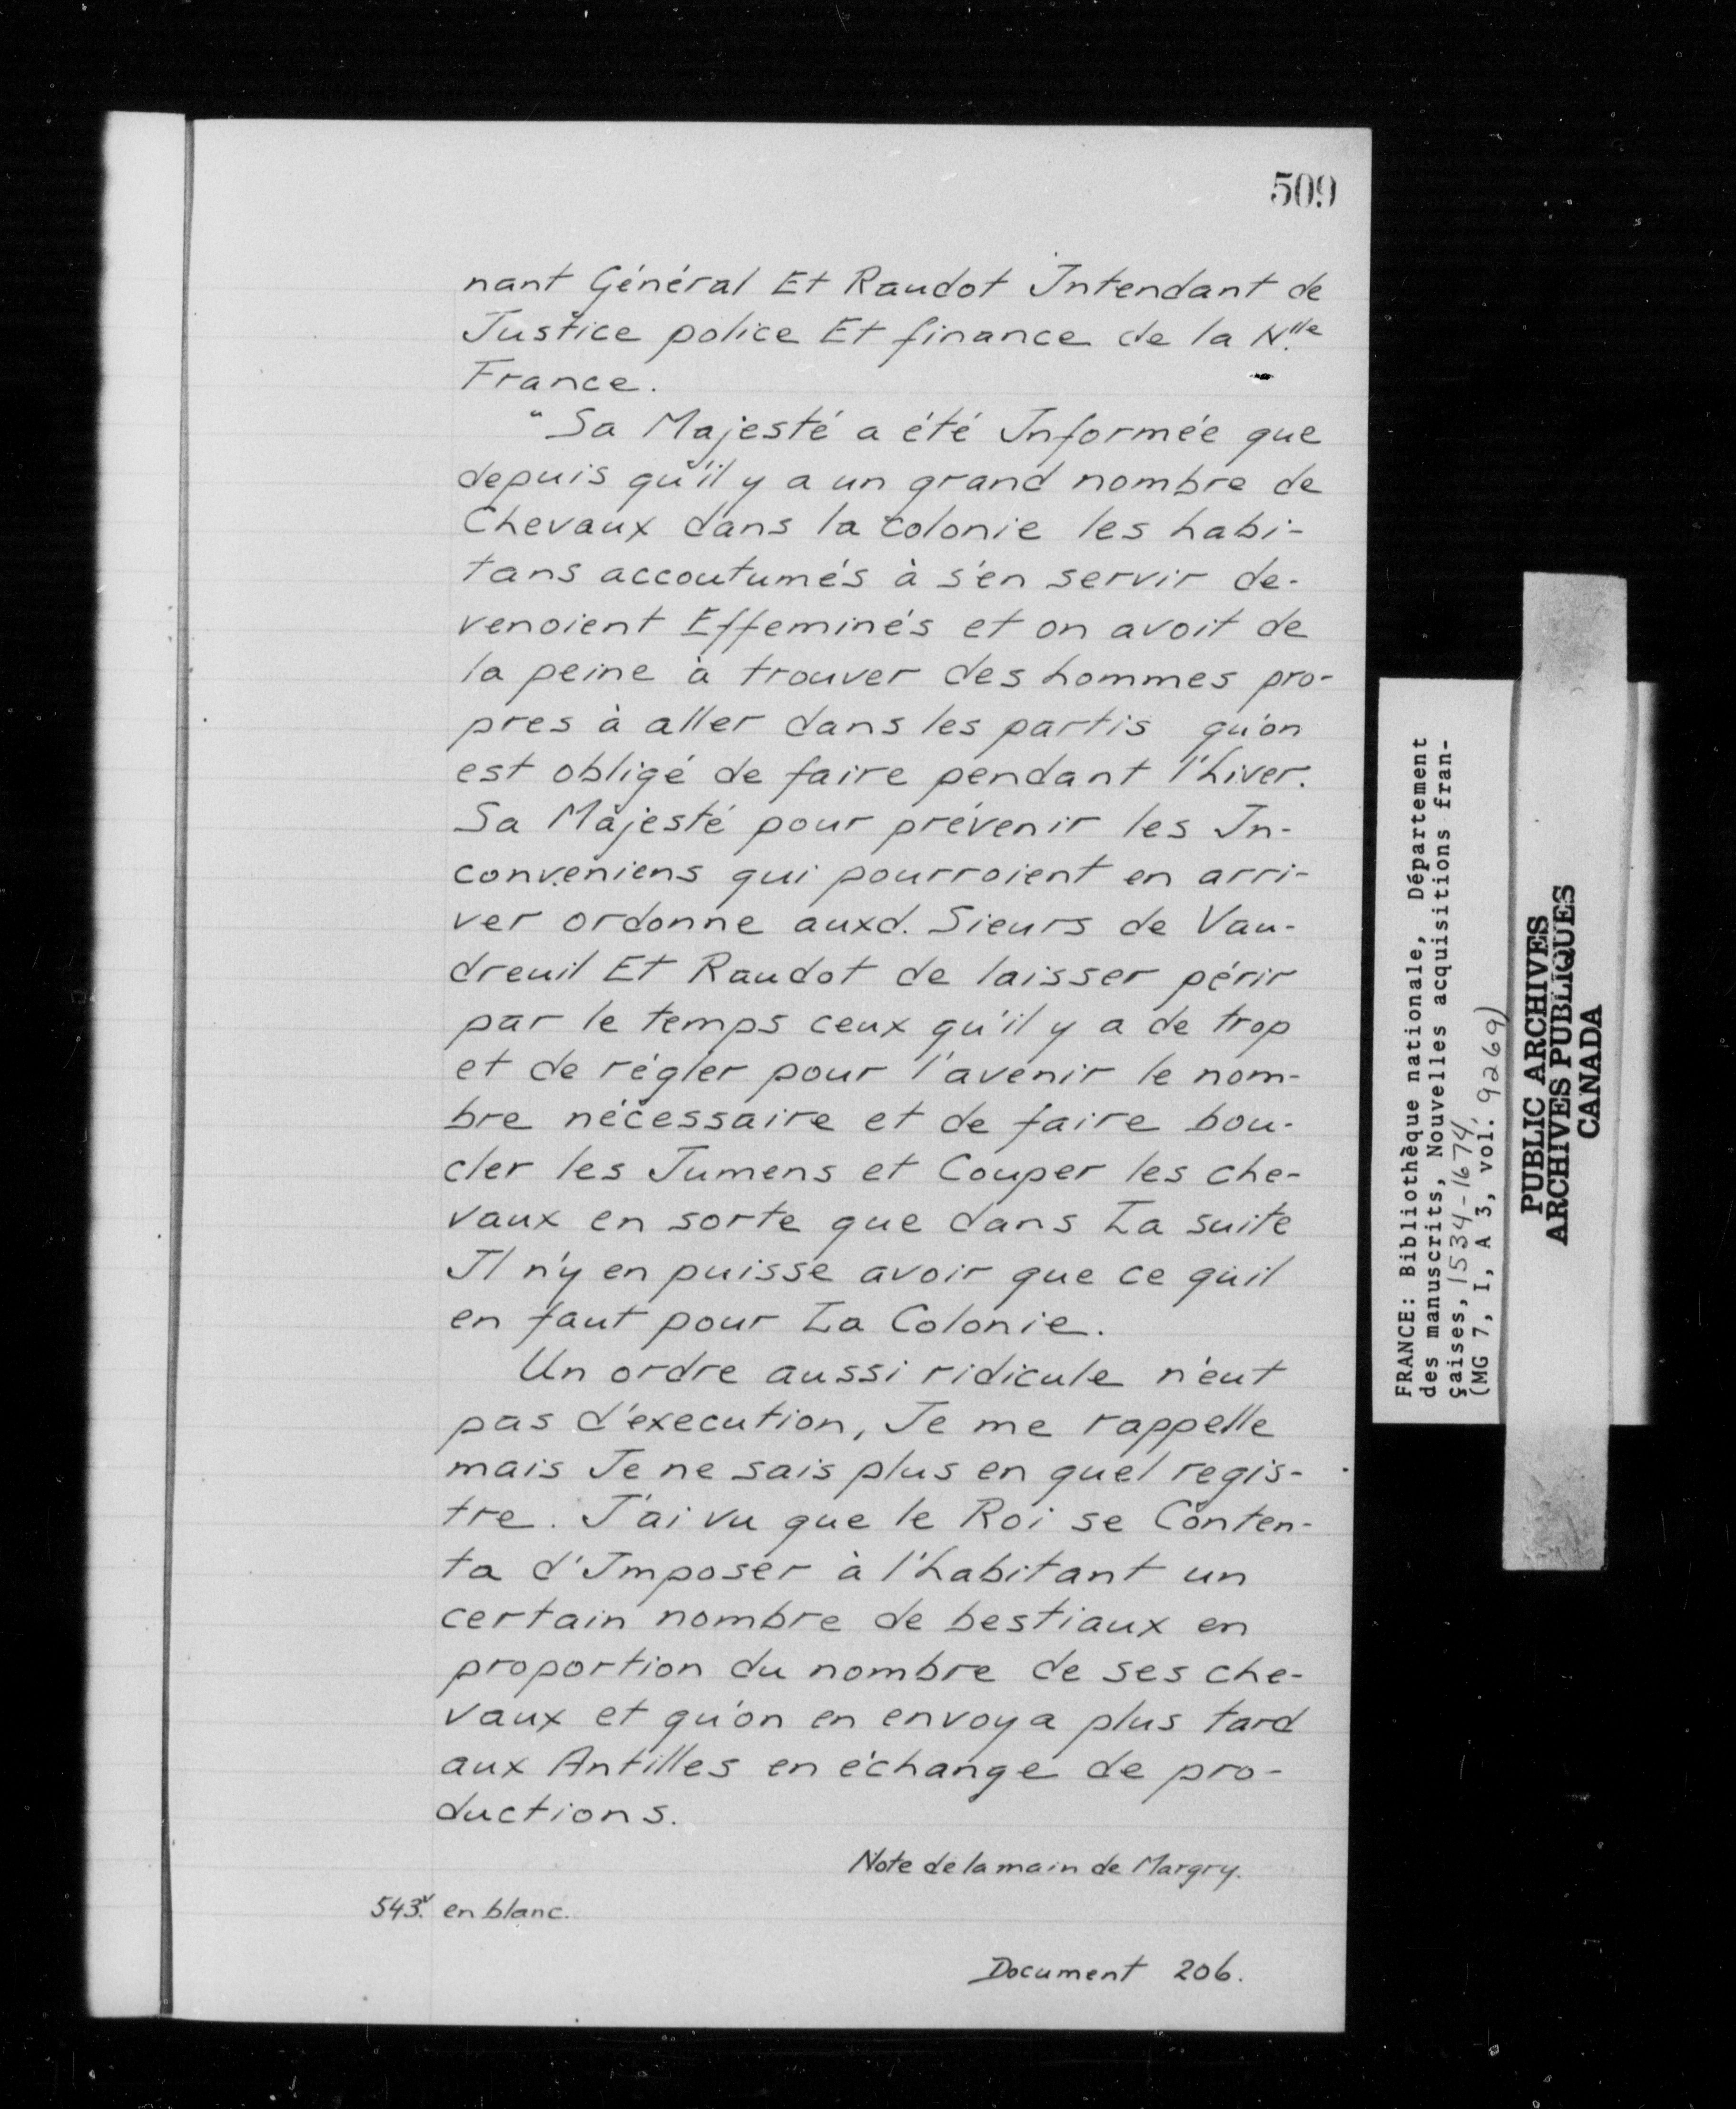 509
nant Général Et Raudot Intendant de
Justice police Et finance de la N.lle
France.
"Sa Majesté a été Informée que
depuis qu'il y a un grand nombre de
Chevaux dans la Colonie les habi-
tans accoutumés à s'en servir de-
venoient Effeminés et on avoit de
la peine à trouver des hommes pro-
pres à aller dans les partis qu'on
est obligé de faire pendant l'hiver.
Sa Majesté pour prévenir les In-
conveniens qui pourroient en arri-
ver ordonne auxd. Sieurs de Vau-
dreuil Et Raudot de laisser périr
par le temps ceux qu'il y a de trop
et de régler pour l'avenir le nom-
bre nécessaire et de faire bou-
cler les Jumens et Couper les che-
vaux en sorte que dans La suite
Il n'y en puisse avoir que ce qu'il
en faut pour La Colonie.
Un ordre aussi ridicule n'eut
pas d'execution, Je me rappelle
mais Je ne sais plus en quel regis-
tre. J'ai vu que le Roi se Conten-
ta d'Imposer à l'habitant un
certain nombre de bestiaux en
proportion du nombre de ses che-
vaux et qu'on en envoya plus tard
aux Antilles en échange de pro-
ductions.
Note de la main de Margry.
543.v en blanc.
Document 206.
FRANCE: Bibliothèque nationale, Département
des manuscrits, Nouvelles acquisitions fran-
çaises, 1534-1674
(MG 7, I, A 3, vol. 9269)
PUBLIC ARCHIVES
ARCHIVES PUBLIQUES
CANADA